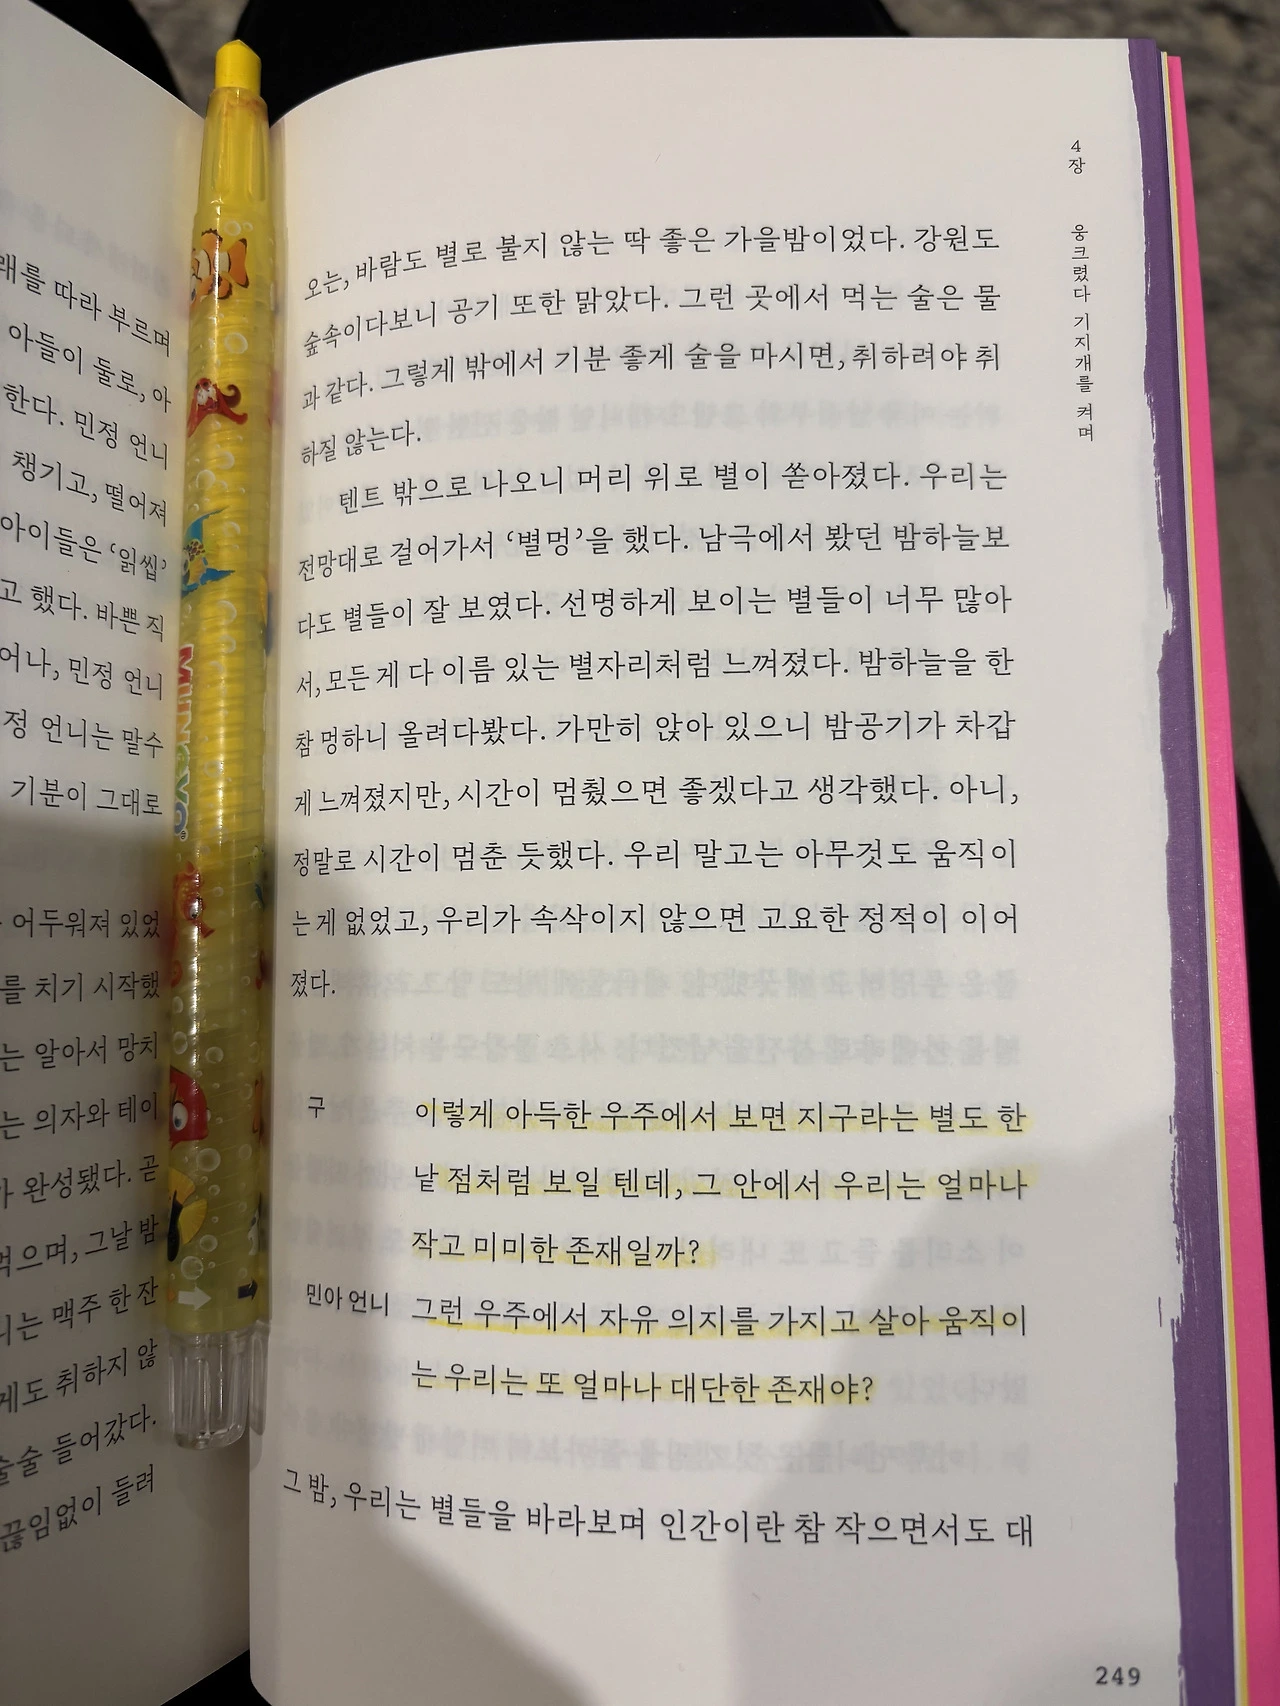 래를 따라 부르며
아들이 둘로, 아
한다. 민정 언니
챙기고, 떨어져
아이들은 ‘읽씹’
고 했다. 바쁜 직
어나, 민정 언니
정 언니는 말수
기분이 그대로
어두워져 있었
를 치기 시작했
는 알아서 망치
는 의자와 테이
완성됐다. 곧
먹으며, 그날 밤
니는 맥주 한 잔
게도 취하지 않
술술 들어갔다.
끊임없이 들려
MUNGYO
4장 웅크렸다 기지개를 켜며
오는, 바람도 별로 불지 않는 딱 좋은 가을밤이었다. 강원도
숲속이다보니 공기 또한 맑았다. 그런 곳에서 먹는 술은 물
과 같다. 그렇게 밖에서 기분 좋게 술을 마시면, 취하려야 취
하질 않는다.
텐트 밖으로 나오니 머리 위로 별이 쏟아졌다. 우리는
전망대로 걸어가서 ‘별멍’을 했다. 남극에서 봤던 밤하늘보
다도 별들이 잘 보였다. 선명하게 보이는 별들이 너무 많아
서, 모든 게 다 이름 있는 별자리처럼 느껴졌다. 밤하늘을 한
참 멍하니 올려다봤다. 가만히 앉아 있으니 밤공기가 차갑
게 느껴졌지만, 시간이 멈췄으면 좋겠다고 생각했다. 아니,
정말로 시간이 멈춘 듯했다. 우리 말고는 아무것도 움직이
는 게 없었고, 우리가 속삭이지 않으면 고요한 정적이 이어
졌다.
구 이렇게 아득한 우주에서 보면 지구라는 별도 한
낱 점처럼 보일 텐데, 그 안에서 우리는 얼마나
작고 미미한 존재일까?
민아 언니 그런 우주에서 자유 의지를 가지고 살아 움직이
는 우리는 또 얼마나 대단한 존재야?
그 밤, 우리는 별들을 바라보며 인간이란 참 작으면서도 대
249